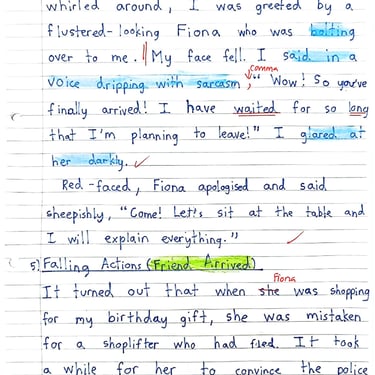 whirled around, I was greeted by a
flustered-looking Fiona who was bolting
over to me. || My face fell. I said in a
comma
voice dripping with sarcasm, "Wow! So you've
finally arrived! I have waited for so long
that I'm planning to leave!" I glared at
her darkly.
Red-faced, Fiona apologised and said
sheepishly, "Come! Let's sit at the table and
I will explain everything."
5) Falling Actions (Friend Arrived)
Fiona
It turned out that when she was shopping
for my birthday gift, she was mistaken
for a shoplifter who had fled. It took
a while for her to convince the police